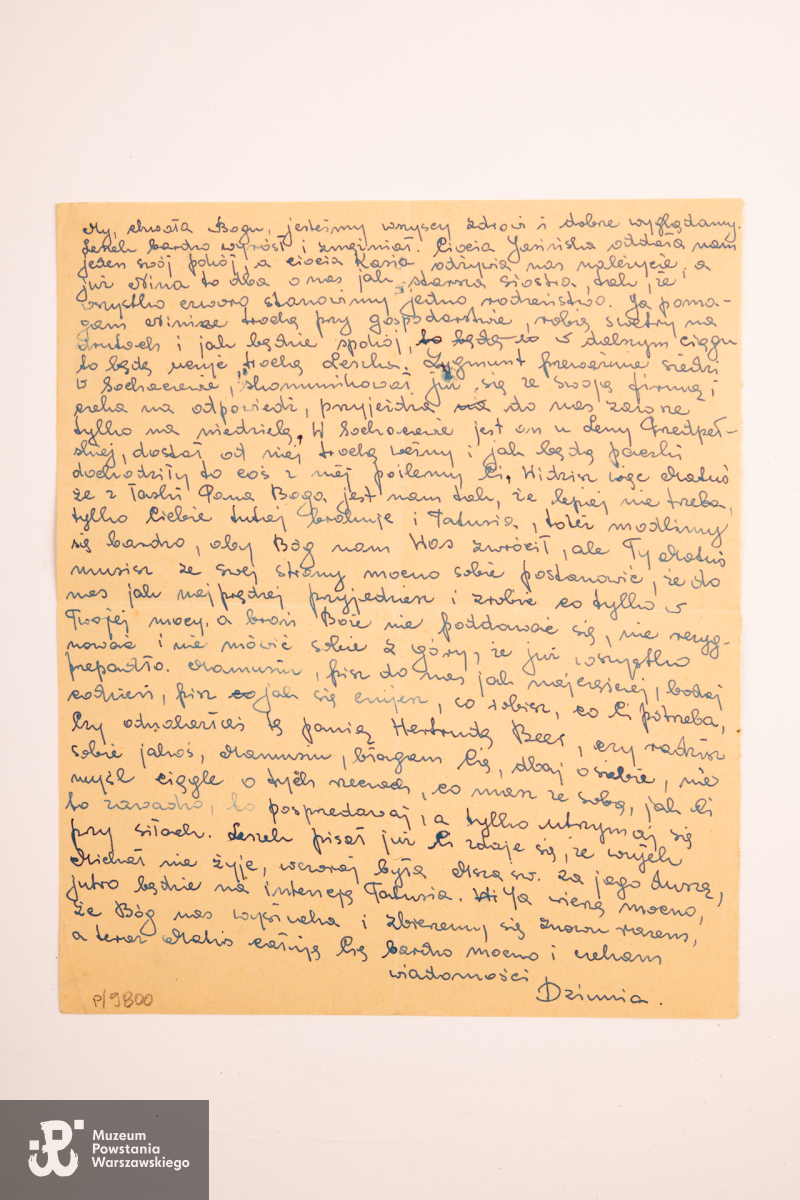 My, chwała Bogu, jesteśmy wszyscy zdrowi i dobrze wyglądamy.
Leszek bardzo wyrósł i zmężniał. Ciocia Jasińska oddała nam
jeden swój pokój, a ciocia Kasia odżywia nas należycie, a
już Nina to dba o nas jak starsza siostra, tak, że
wszystko czworo stanowimy jedno rodzeństwo. Ja poma-
gam Nince trochę przy gospodarstwie, robię swetry na
drutach i jak będzie spokój, to będę to w dalszym ciągu
to będę uczyć trochę Leszka. Zygmunt przeważnie siedzi
w Sochaczewie, skomunikował już się ze swoją firmą i
czeka na odpowiedź, przyjeżdża na do nas zawsze
tylko na niedzielę. W Sochaczewie jest on u Leny
dostał od niej trochę wełny i jak będą paczki
dochodziły to coś z niej poślemy Ci. Widzisz więc Matuś
że z łaski Pana Boga jest nam tak, że lepiej nie trzeba,
tylko Ciebie tutaj brakuje i Tatusia, toteż modlimy
się bardzo, aby Bóg nam Was zwrócił, ale Ty Matuś
musisz ze swej strony mocno sobie postanowić, że do
nas jak najprędzej przyjedziesz i zrobić co tylko w
Twojej mocy. a broń Boże nie poddawać się, nie rezyg-
nować i nie mówić sobie z góry, że już wszystko
przepadło. Mamusiu, pisz do nas jak najczęściej, bodaj
codzień, pisz co jak się czujesz, co robisz, co Ci potrzeba,
Czy odnalazłaś tę panią Hertrudę Bees, czy radzisz
sobie jakoś, Mamusiu, błagam Cię, dbaj o siebie, nie
myśl ciągle o tych rzeczach, co masz ze sobą, jak Ci
to zawadza, to posprzedawaj, a tylko utrzymaj się
przy siłach. Leszek pisał już Ci zdaje się, że wujek
Michał nie żyje, wczoraj była Msza św. za jego duszę,
jutro będzie na intencję Tatusia. Ja wierzę mocno,
że Bóg nas wysłucha i zbierzemy się znowu razem,
a teraz Matuś całuję Cię bardzo mocno i czekam
wiadomości
Dziunia.
P/9800
Muzeum
Powstania
Warszawskiego